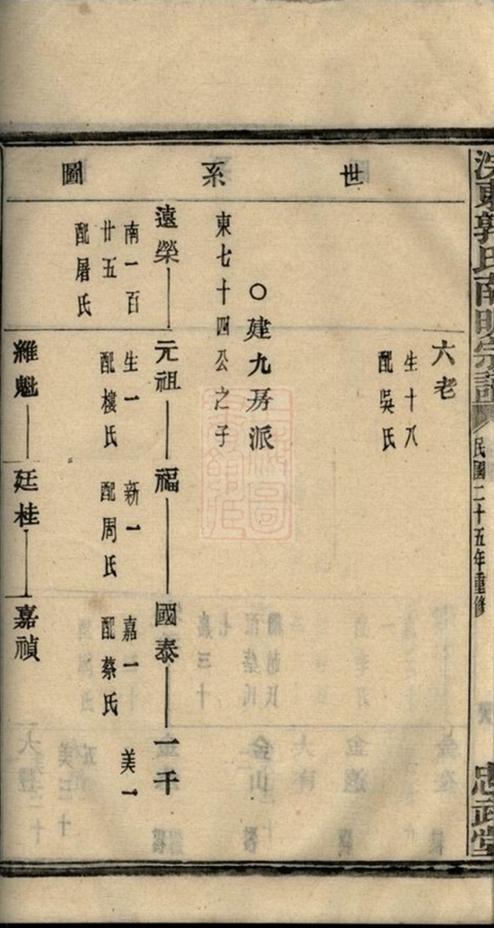 東郭氏南明宗譜
民國二十五年重修
忠武堂
世系圖
六老
生十八
配吳氏
○建九房派
東七十四公之子
遠榮
南一百
廿五
配屠氏
元祖
生一
配樓氏
福
新一
配周氏
國泰
嘉一
配蔡氏
一千
美一
維魁
廷桂
嘉禎